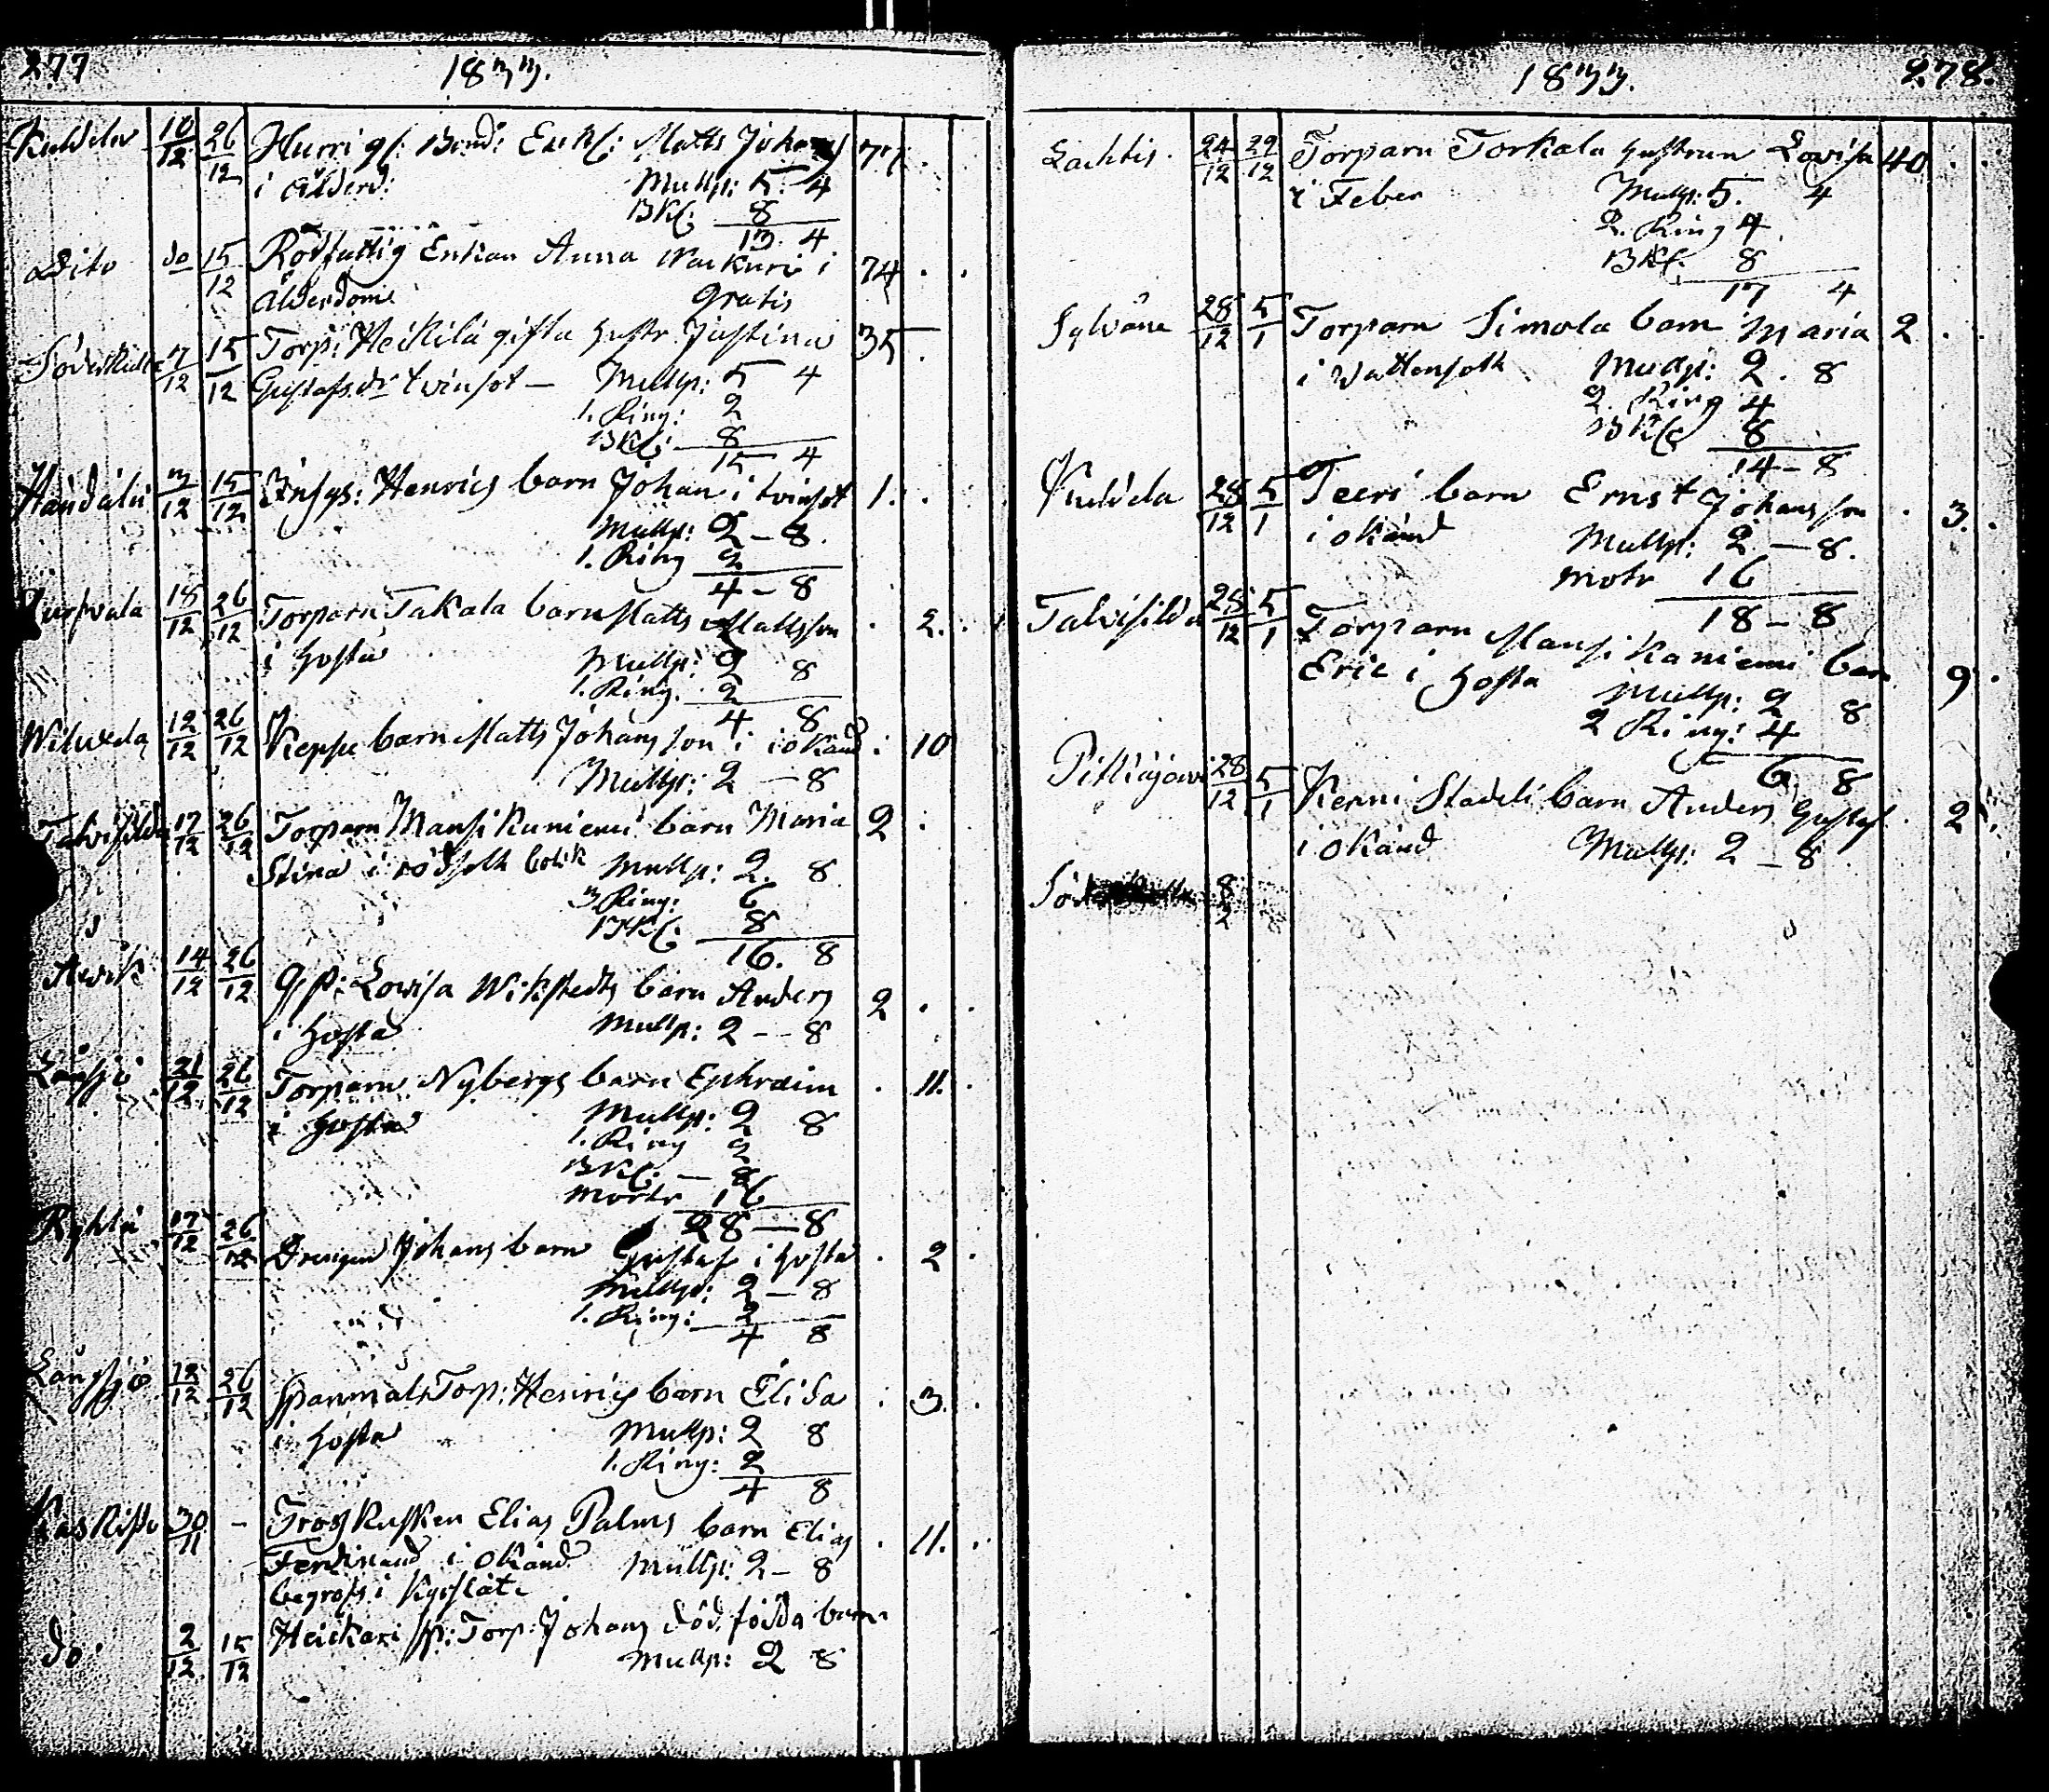 277 1833.
Kuldela 10/12 26/12 Hurri gl: Bond: Enkl: Matts Johans 77.
i ålderd: Mullp: 5. 4
BKl: 8
13. 4
Dito do 15/12 Rotfattig Enkan Anna Warkuri i 74
Ålderdom gratis
Söderkulla 7/12 15/12 Torp: Heikilä gifta hustr. Justina 35
Gustafs dr tvinsot – Mullp: 5 4
1. Ring: 2
BKl: 8
15 4
Handälä 3/12 15/12 Inhys: Henrics barn Johan i tvinsot 1.
Mullp: 2 – 8.
1. Ring 2
4 – 8
18/12 26/12 Torparn Takala barn Matts Mattsson 2.
i hosta Mullp: 2 8
1. Ring. 2
4 8
12/12 26/12 Keppe barn Matts Johansson i okänd 10
Mullp: 2 – 8
Talvisilda 17/12 26/12 Torparn Mansikuniemi barn Maria 2
Stina i rödsoth Mullp: 2. 8
3 Ring: 6
BKl: 8
16. 8
Awik 14/12 26/12 Lowisa Wikstedts barn Anders 2
i hosta Mullp: 2 – 8
Långsjö 21/12 26/12 Torparn Nybergs barn Ephraim 11.
i hosta Mullp: 2 8
1. Ring 2
BKl: – 8
Mortr 16
28 – 8
Ryhlä 17/12 26/12 Drengen Johans barn Gustaf i hosta 2
Mullp: 2 – 8
1. Ring: 2
4 8
Långsjö 12/12 26/12 Spanmåls Torp: Henrics barn Elisa 3.
i hosta Mullp: 2 8
1. Ring: 2
4 8
Kaskisto 30/11 – Trosskusken Elias Palms barn Elias 11.
Ferdinand i okänd Mullp: 2 – 8
begrofs i Kyrslätt
do 2/12 15/12 Heickari sp: Torp: Johans död födda barn
Mullp: 2 8
1833. 278.
Lachtis. 24/12 29/12 Torparn Torkala hustrun Lovisa 40
i Feber Mullp: 5. 4
2. Ring 4.
BKl. 8
17 4
Sylvänä 28/12 5/1 Torparn Simola barn Maria 2
i Wattensoth Mullp: 2. 8
2. Ring 4
BKl 8
14 – 8
Kuldela 28/12 5/1 Teeri barn Ernst Johansson 3.
i okänd Mullp: 2 – 8.
Motr 16
18 – 8
Talvisilda 28/12 5/1 Torparn Mansikaniemi barn
Eric i hosta 9
Mullp: 2 8
2 Ring: 4
6 8
Pitkäjärvi 28/12 5/1 Kenni Stadeli barn Anders Gustaf 2
i okänd Mullp: 2 – 8
8/2